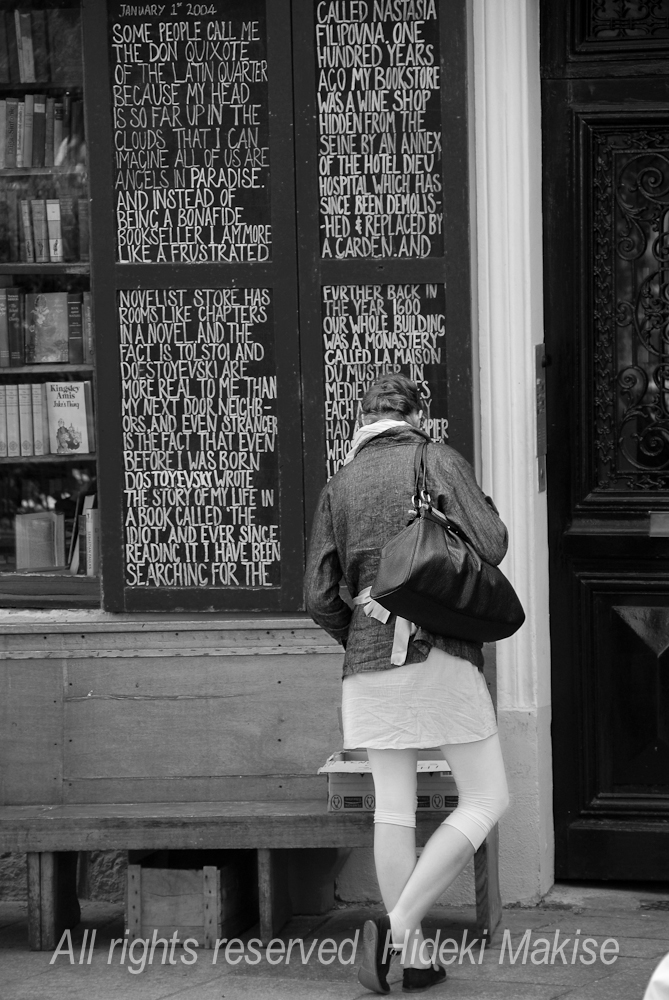 JANUARY 1ST 2004
SOME PEOPLE CALL ME
THE DON QUIXOTE
OF THE LATIN QUARTER
BECAUSE MY HEAD
IS SO FAR UP IN THE
CLOUDS THAT I CAN
IMAGINE ALL OF US ARE
ANGELS IN PARADISE.
AND INSTEAD OF
BEING A BONAFIDE
BOOKSELLER I AM MORE
LIKE A FRUSTRATED
NOVELIST. STORE HAS
ROOMS LIKE CHAPTERS
IN A NOVEL AND THE
FACT IS TOLSTOI AND
DOESTOYEVSKI ARE
MORE REAL TO ME THAN
MY NEXT DOOR NEIGHB-
ORS, AND EVEN STRANGER
IS THE FACT THAT EVEN
BEFORE I WAS BORN
DOSTOYEVSKY WROTE
THE STORY OF MY LIFE IN
A BOOK CALLED 'THE
IDIOT AND EVER SINCE
READING IT I HAVE BEEN
SEARCHING FOR THE
CALLED NASTASIA
FILIPOVNA. ONE
HUNDRED YEARS
AGO MY BOOKSTORE
WAS A WINE SHOP
HIDDEN FROM THE
SEINE BY AN ANNEX
OF THE HOTEL DIEU
HOSPITAL WHICH HAS
SINCE BEEN DEMOLIS-
HED & REPLACED BY
A GARDEN. AND
FURTHER BACK IN
THE YEAR 1600
OUR WHOLE BUILDING
WAS A MONASTERY
CALLED LA MAISON
DU MUSTIER. IN
EACH
HAD
Kingsley
Amis
Jake's Thing
All rights reserved Hideki Makise